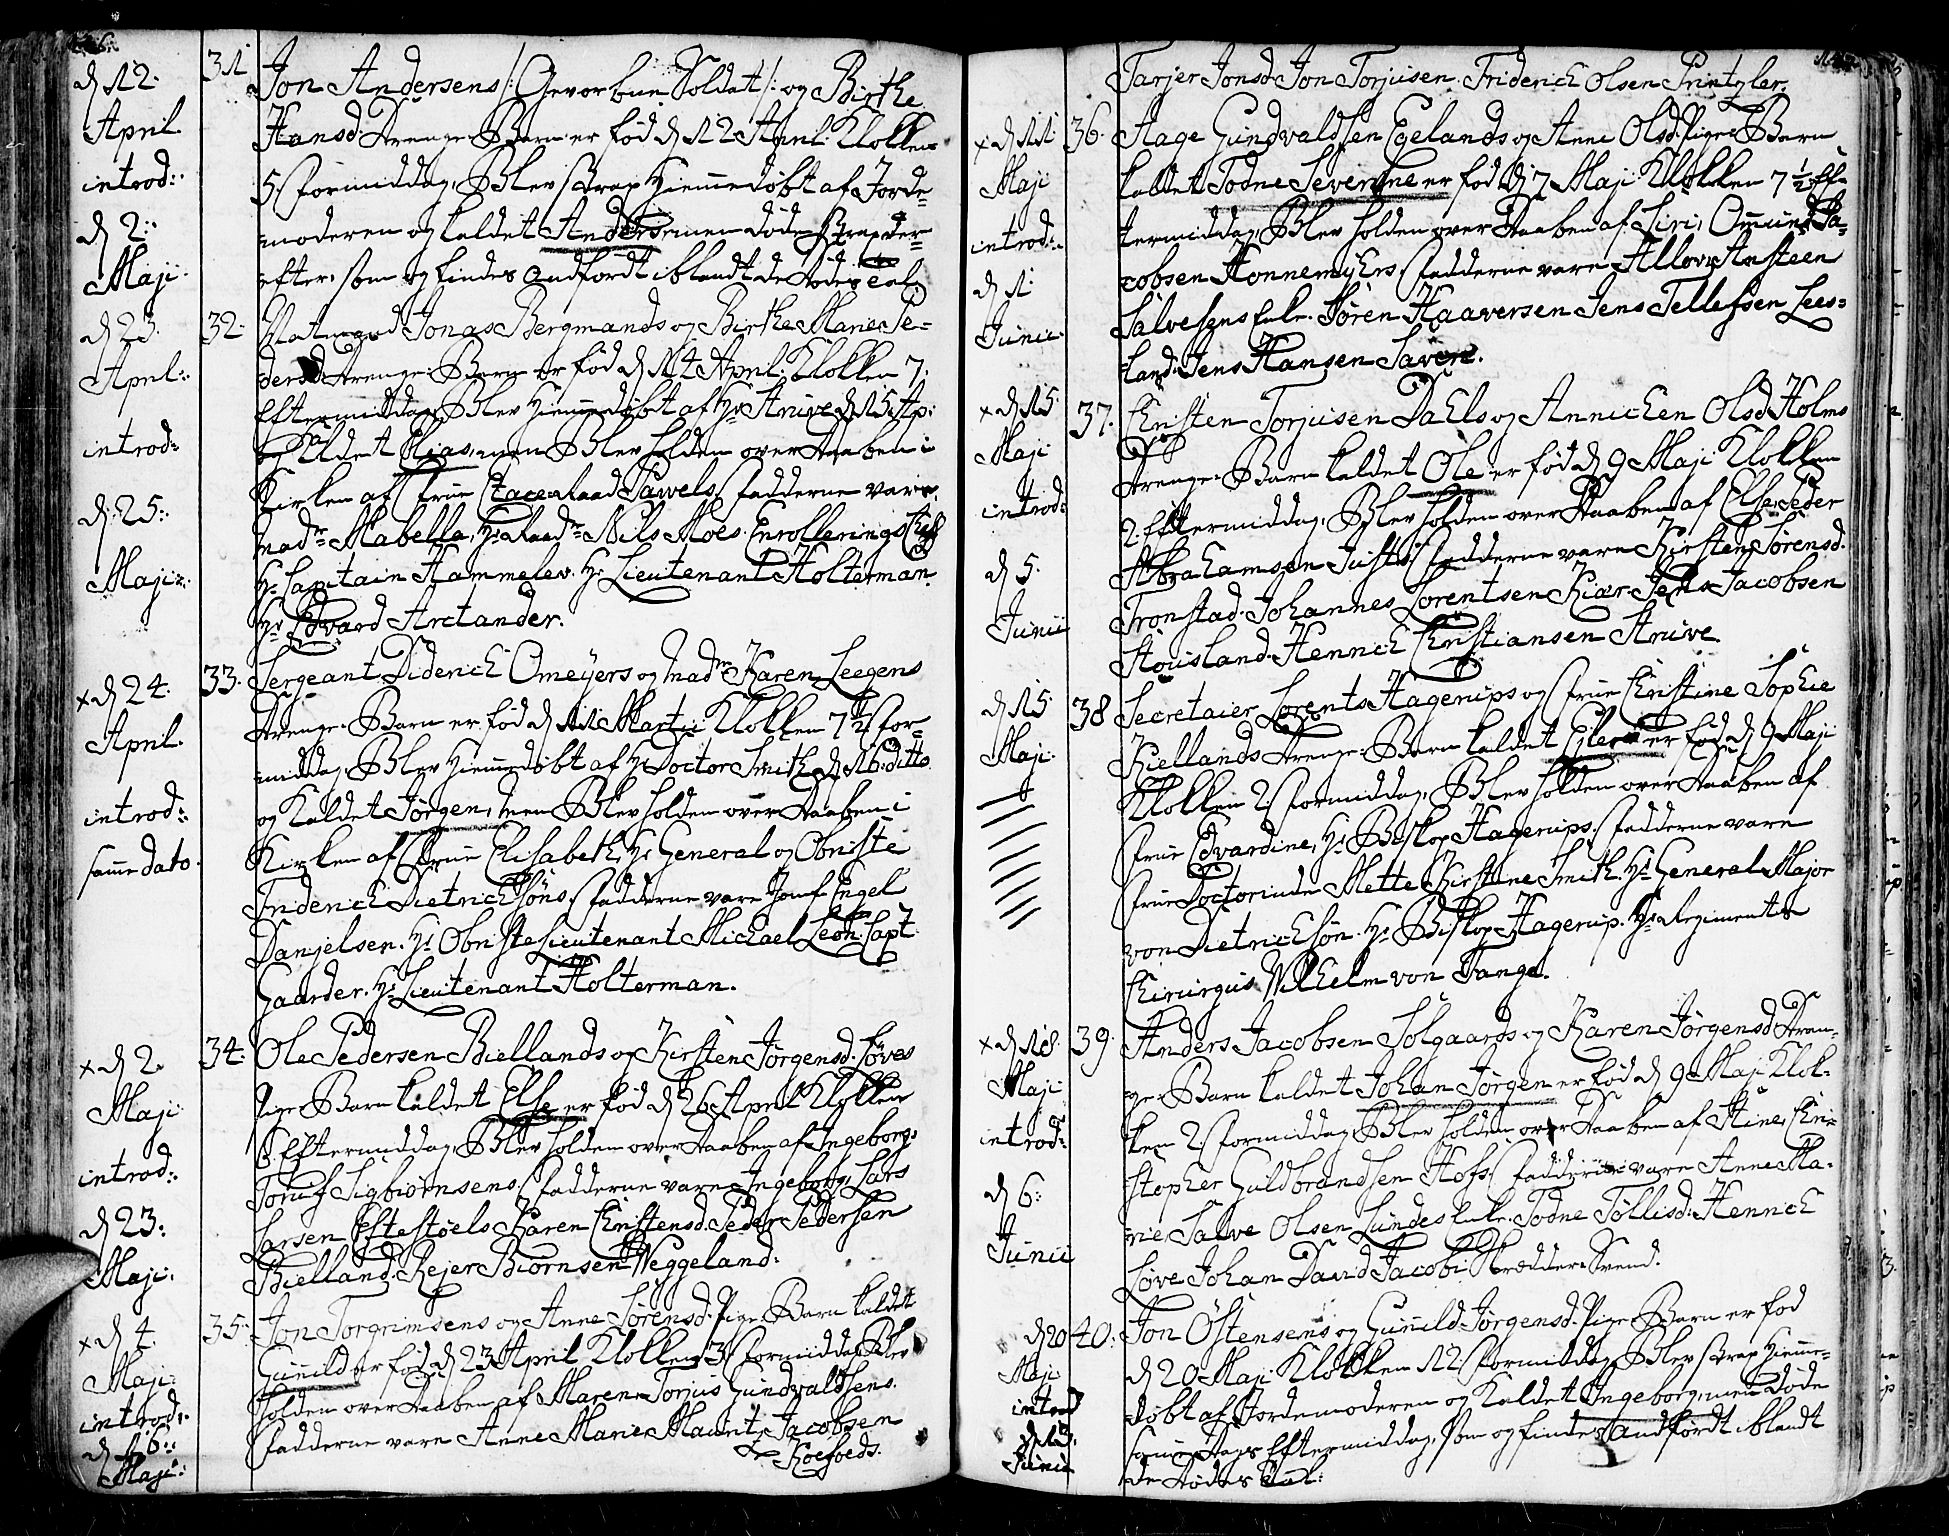 31. Jon Andersens /: Gevorbne Soldat :/ og Birthe
Hansd. Drenge-Barn er fød d 12 April Klokken
5 Formiddag, Blev strax Hiemmedøbt af Jorde-
moderen og kaldet Anders, men døde strax der-
efter, som og findes andfördt iblandt de Dødes tal.
d 12.
April
introd:
d 2:
Maji
32. Jonas Bergmands og Birthe Marie Pe-
dersd. Drenge-Barn er fød d 14 April Klokken 7.
Eftermiddag, Blev Hiemmedøbt af Hr Arctander d 15 Ap:
og kaldet Elias, men Blev holden over Daaben i
Kirken af Frue Pawels, Fadderne vare
Mad: Mabella, Hr Nils Moes. Enrollerings Chef
Hr Capitain Hammeler. Hr Lieutenant Holterman.
Hr Edvard Arctander.
d 23.
April:
introd:
d: 25:
Maji:
33. Sergeant Diderich Omeyers og Madm Karen Leegens
Drenge-Barn er fød d 11 Martii Klokken 7 1/2 For-
middag, Blev Hiemmedøbt af Hr Doctor Smith d 16 ditto
og Kaldet Jørgen, men Blev holden over Daaben i
Kirken af Frue Elisabeth, Hr General og Obriste
Friderich Dietrichsöns, Fadderne vare Jomf Engel
Danjelsen. Hr Obriste Lieutenant Michael Leon. Capt
Gaarder. Hr Lieutenant Holterman.
x d 24.
April
introd:
samme dato.
34. Ole Pedersen Biellands og Kirsten Jørgensd. Løves
Pige-Barn kaldet Else er fød d 26 April Klokken
8 Eftermiddag, Blev holden over Daaben af Ingeborg,
Toruf Sigbiørnsens, Fadderne vare Ingeborg, Lars
Larsen Eftestøels. Karen Christensd. Peder Pedersen
Bielland. Rejer Biørnsen Weggeland.
x d 2.
Maji
introd:
d 23:
Maji.
35. Jon Torgrimsens og Anne Sørensd. Pige-Barn kaldet
Gunild er fød d 23 April Klokken 3 Formiddag, Blev
holden over Daaben af Maren, Torjus Gundvaldsens.
Fadderne vare Anne Marie Maurits Jacobsen
Koefoeds.
x d 4.
Maji
introd:
d 16:
Maji:
Tarjer Jonsd. Jon Torjusen. Friderich Olsen Printzler.
36. Aage Gundvaldsen Egelands og Anne Olsd. Pige-Barn
kaldet Todne Severine er fød d 7 Maji Klokken 7 1/2 Ef-
termiddag, Blev holden over Daaben af Siri, Omund Ja-
cobsen Honnemyers, Fadderne vare Allow, Ansteen
Salvesens Enke. Søren Haaversen. Jens Tellefsen Lees-
land. Jens Hansen Savere.
x d 11
Maji
introd:
d 1.
Junii
37. Christen Torjusen Daels og Annichen Olsd. Holms
Drenge-Barn kaldet Ole er fød d 9 Maji Klokken
2 Eftermiddag, Blev holden over Daaben af Else, Peder
Abrahamsen Justs, Fadderne vare Kirsten Sørensd.
Tronstad. Johannes Lorentsen Kiær. Jens Jacobsen
Stousland. Henrich Christiansen
x d 15
Maji
introd:
d 5.
Junii
38 Secretaier Lorents Hagerups og Frue Christine Sophie
Kiellands Drenge-Barn kaldet Eiler er fød d 9 Maji
Klokken 2 Formiddag, Blev holden over Daaben af
Frue Edvardine, Hr Biskop Hagerups. Fadderne vare
Frue Doctorinde Mette Kirstine Smith. Hr General-Major
von Dietrichsön. Hr Biskop Hagerup. Hr Regiments
Chirurgus Wilhelm von Tangen.
d 15
Maji
39. Anders Jacobsen Solgaards og Karen Jørgensd. Dren-
ge-Barn kaldet Johan Jørgen er fød d 9 Maji Klok-
ken 2 Formiddag, Blev holden over Daaben af Stine, Chri-
stopher Guldbrandsen Hofs, Fadderne vare Anne Ma-
rie, Salve Olsen Lundes Enke. Todne Tøllisd. Henrich
Løve. Johan David Jacobi Skrædder-Svend.
x d 18.
Maji
introd:
d 6:
Junii
40. Jon Östensens og Gunild Jørgensd. Pige-Barn er fød
d 20 Maji Klokken 12 Formiddag, Blev strax Hiemme-
døbt af Jordemoderen og Kaldet Ingeborg, men døde
samme Dags Eftermiddag, som og findes andfördt iblandt
de Dødes tal.
d 20
Maji
introd
d 13.
Junii